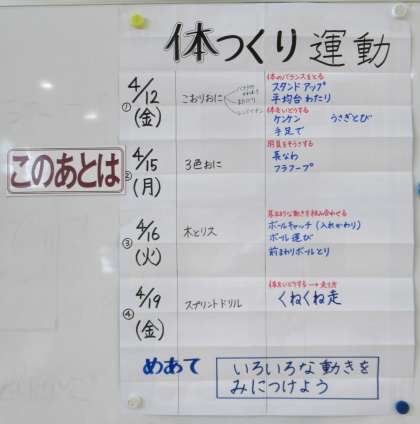 体つくり運動
① 4/12 (金)
こおりおに
体のバランスをとる
スタンドアップ
平均台わたり
体をいどうする
ケンケン うさぎとび
手足で
このあとは
② 4/15 (月)
3色おに
用具をそうさする
長なわ
フラフープ
③ 4/16 (火)
木とリス
ボールキャッチ (入れかわり)
ボール運び
前まわりボールとり
④ 4/19 (金)
スプリントドリル
体をいどうする→走り方
くねくね走
めあて
いろいろな動きを
みにつけよう